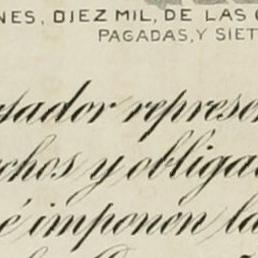 NES, DIEZ MIL, DE LAS
PAGADAS, Y SIET
sador represen
chos y obliga
é imponen la